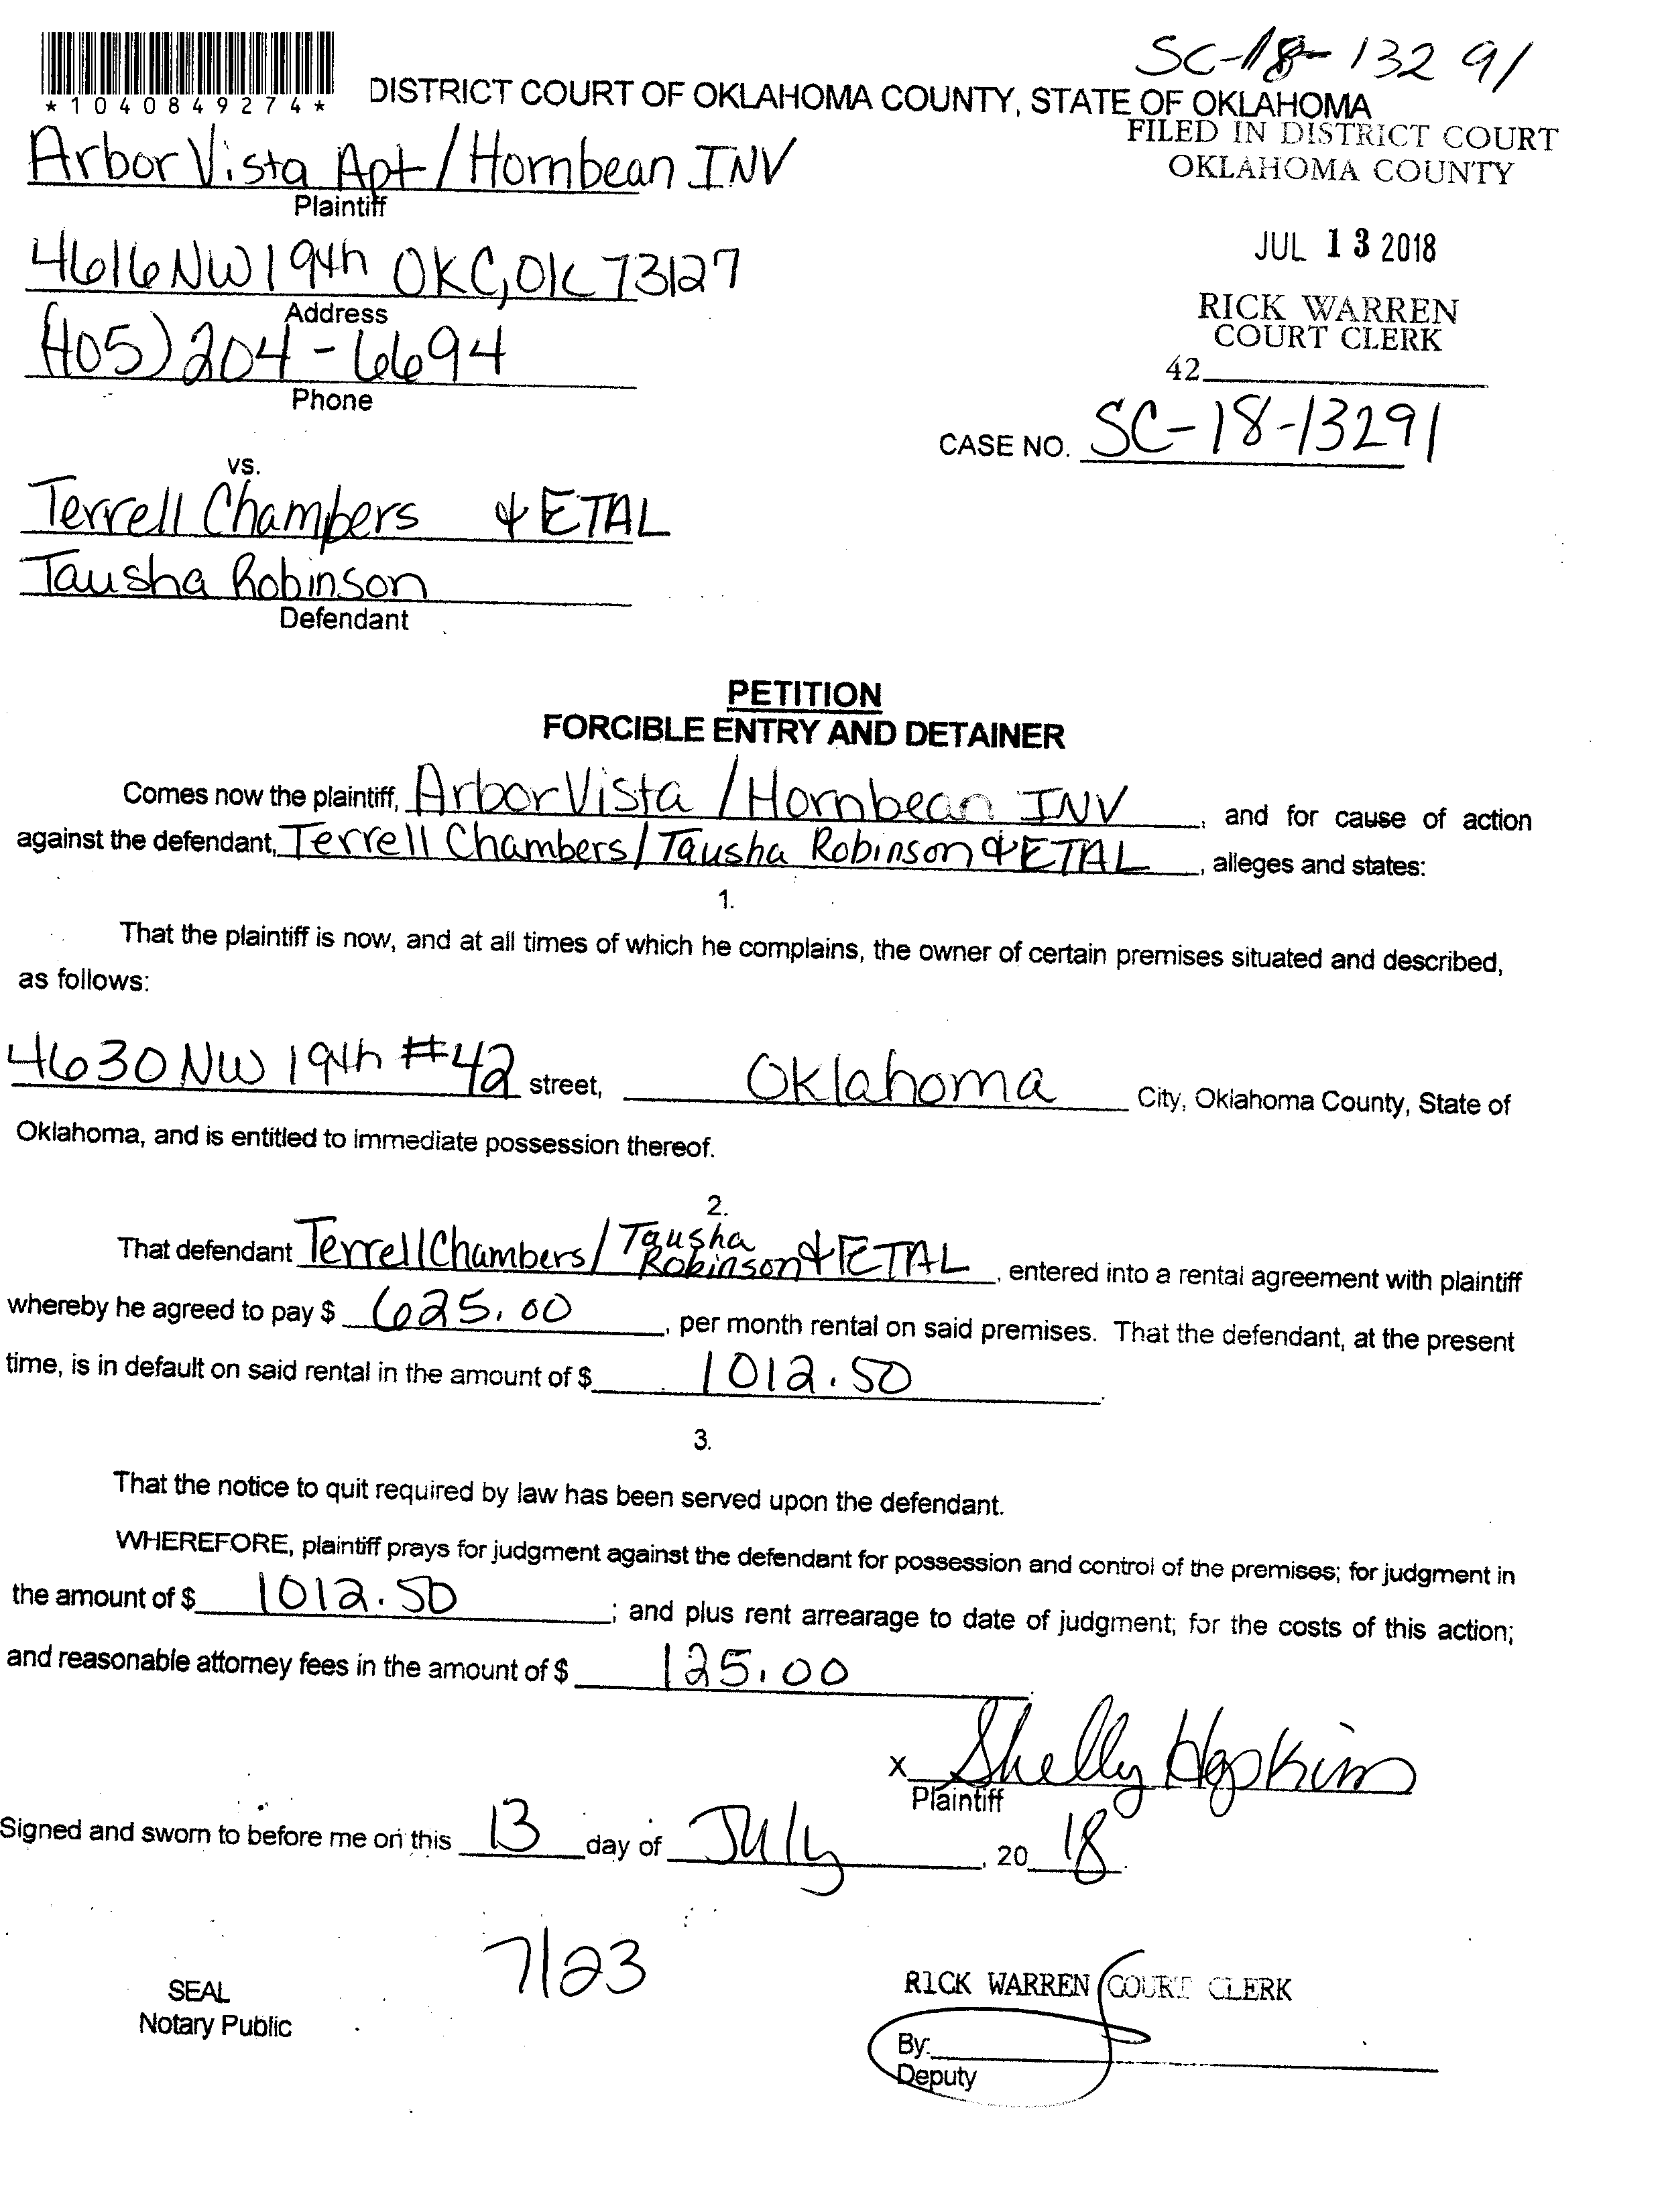 SC-18-13291
*1040849274*
DISTRICT COURT OF OKLAHOMA COUNTY, STATE OF OKLAHOMA
FILED IN DISTRICT COURT
OKLAHOMA COUNTY
Arbor Vista Apt/Hornbean INV
Plaintiff
JUL 13 2018
4616 NW 19th OKC, OK 73127
Address
RICK WARREN
COURT CLERK
(405) 204-6694
42
Phone
CASE NO. SC-18-13291
vs.
Terrell Chambers & ETAL
Tausha Robinson
Defendant
PETITION
FORCIBLE ENTRY AND DETAINER
Comes now the plaintiff, Arbor Vista / Hornbean INV, and for cause of action
against the defendant, Terrell Chambers/Tausha Robinson & ETAL, alleges and states:
1.
That the plaintiff is now, and at all times of which he complains, the owner of certain premises situated and described,
as follows:
4630 NW 19th #42 street, Oklahoma City, Oklahoma County, State of
Oklahoma, and is entitled to immediate possession thereof.
2.
That defendant Terrell Chambers/Tausha Robinson & ETAL, entered into a rental agreement with plaintiff
whereby he agreed to pay $ 625.00, per month rental on said premises. That the defendant, at the present
time, is in default on said rental in the amount of $ 1012.50.
3.
That the notice to quit required by law has been served upon the defendant.
WHEREFORE, plaintiff prays for judgment against the defendant for possession and control of the premises; for judgment in
the amount of $ 1012.50; and plus rent arrearage to date of judgment; for the costs of this action;
and reasonable attorney fees in the amount of $ 125.00.
x Shelly Hopkins
Plaintiff
Signed and sworn to before me on this 13 day of July, 20 18.
7/23
SEAL
Notary Public
RICK WARREN COURT CLERK
By:
Deputy